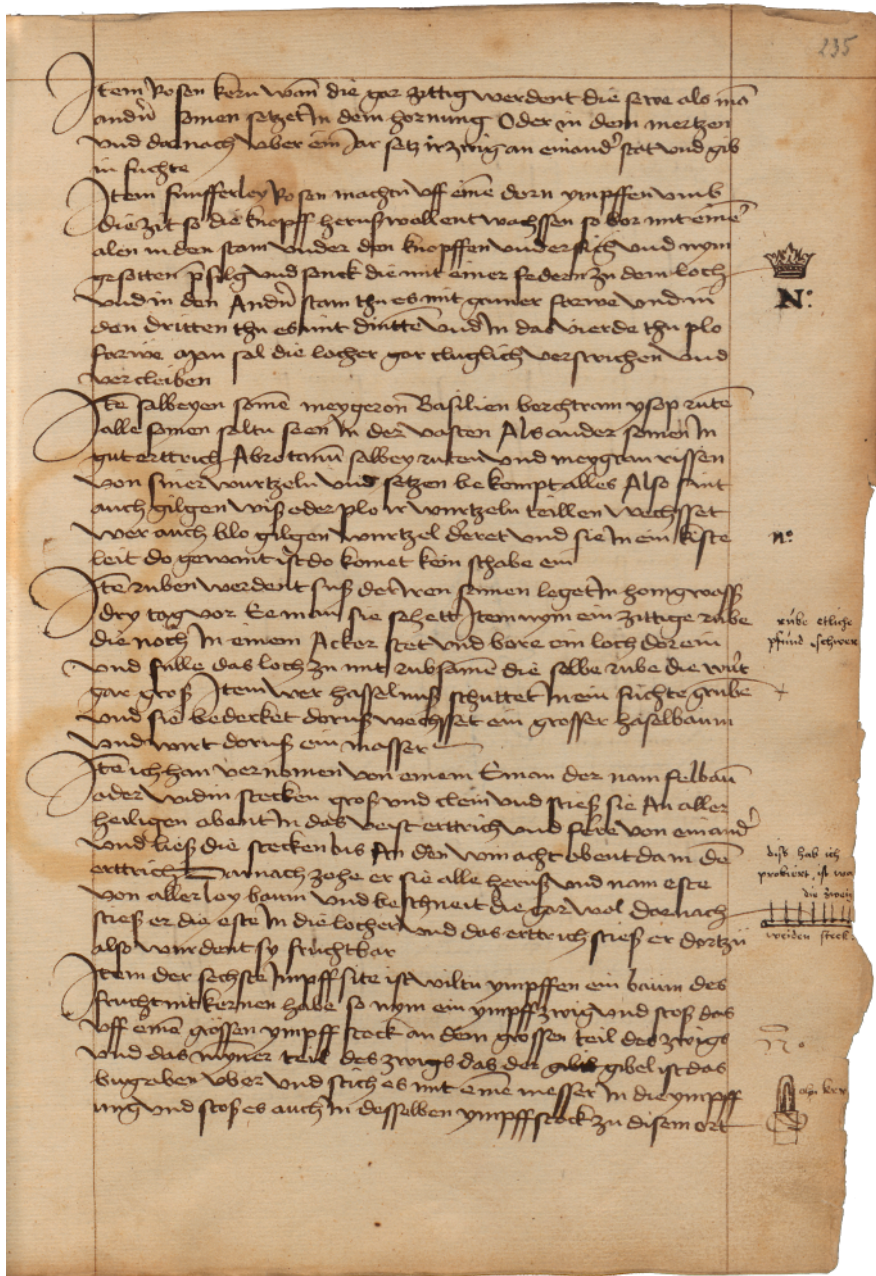 235
Item Rosen kern wan̄ die gar zittig werdent die sewe als mā
ander̄ somen setzet In dem hornung Oder in dem mertzen
vnd darnach vber ein Jar setz ir zwig an einand' stat vnd gib
in fuchte
Item funfferley Rosen machen vff eine dorn ympffen vmb
die zit so die knopff heruß wollent wachssen so bor mit eine
alen in den stam vnder den knopffen vnder sich vnd nym
gesotten vnd senck die mit einer federn zu dem loch
N:
vnd in den Andn̄ stam thu es mit farwe vnd in
den dritten thu es mit vnd In das vierde thu plo
farwe Man sol die locher gar cluglich verstrichen vnd
vercleiben
Itē salbeyen somē meygeron Basilien berchtram ysop rutē
alle somen soltu seen In der vasten Als ander somen In
gut erttrich Abrotanū salbey ruten vnd meygram rissen
von siner wurtzeln vnd setzen bekompt alles Also sint
auch gilgen wiß oder plo ir wurtzeln teillen wechsset
wer auch blo gilgen wurtzel deret vnd sie In ein kiste
n:
leit do gewant ist do komet kein schabe ein
Itē ruben werdent suß wen somen leget In honigwass
dry tag vor Ee man sie sehett Item nym ein zittige rube
rube etliche
die noch In einem Acker stet vnd bore ein loch dor ein
pfund schwer
vnd fulle das loch zu mit rubsamē die selbe rube die wūrt
gar groß Item wer hasselnuß schuttet In ein fuchte grubē
vnd sie bedecket doruß wechsset ein grosser haselbaum
vnd wirt doruß ein masser
Itē ich han vernomen von einem Eman der nam felbaū
oder widin stecken groß vnd clein vnd stieß sie An aller
heiligen obent In das veist erttrich vnd ferre von einand'
vnd ließ die stecken bis An den winacht obent da in dē
diß hab ich
erttrich Darnach zohe er sie alle heruß vnd nam este
probiert, ist wa
von allerley baum vnd beschneit die gar wol darnach
die zweig
stieß er die este In die locher vnd das erttrich stieß er dortzū
weiden steck
also wurdent sy fruchtbar
Item der sechste Impff site ist wiltu ympffen ein baum des
frucht nit kernen habe so nym ein ympff zwig vnd stoß das
vff einē grossen ympff stock an dem grossen teil des zwigs
vnd das myner teil des zwigs das der gibel ist das
bugeben vber vnd stich es mit eine messer In die ympff
ung vnd stoß es auch In desselben ympff stock zu disem ort